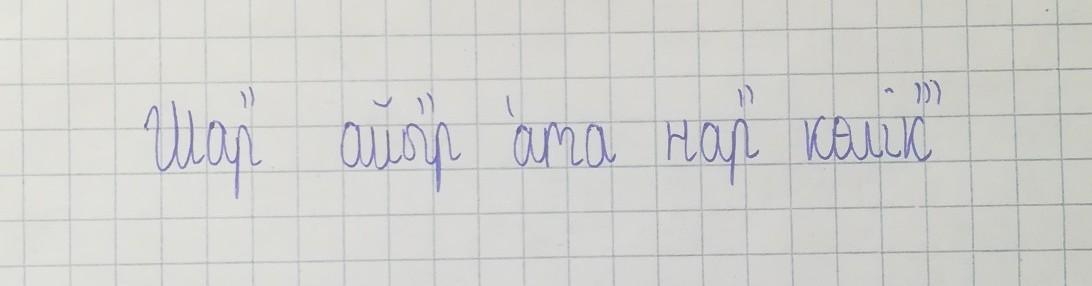 Шар'' айор'' 'ата нар'' көйк'''